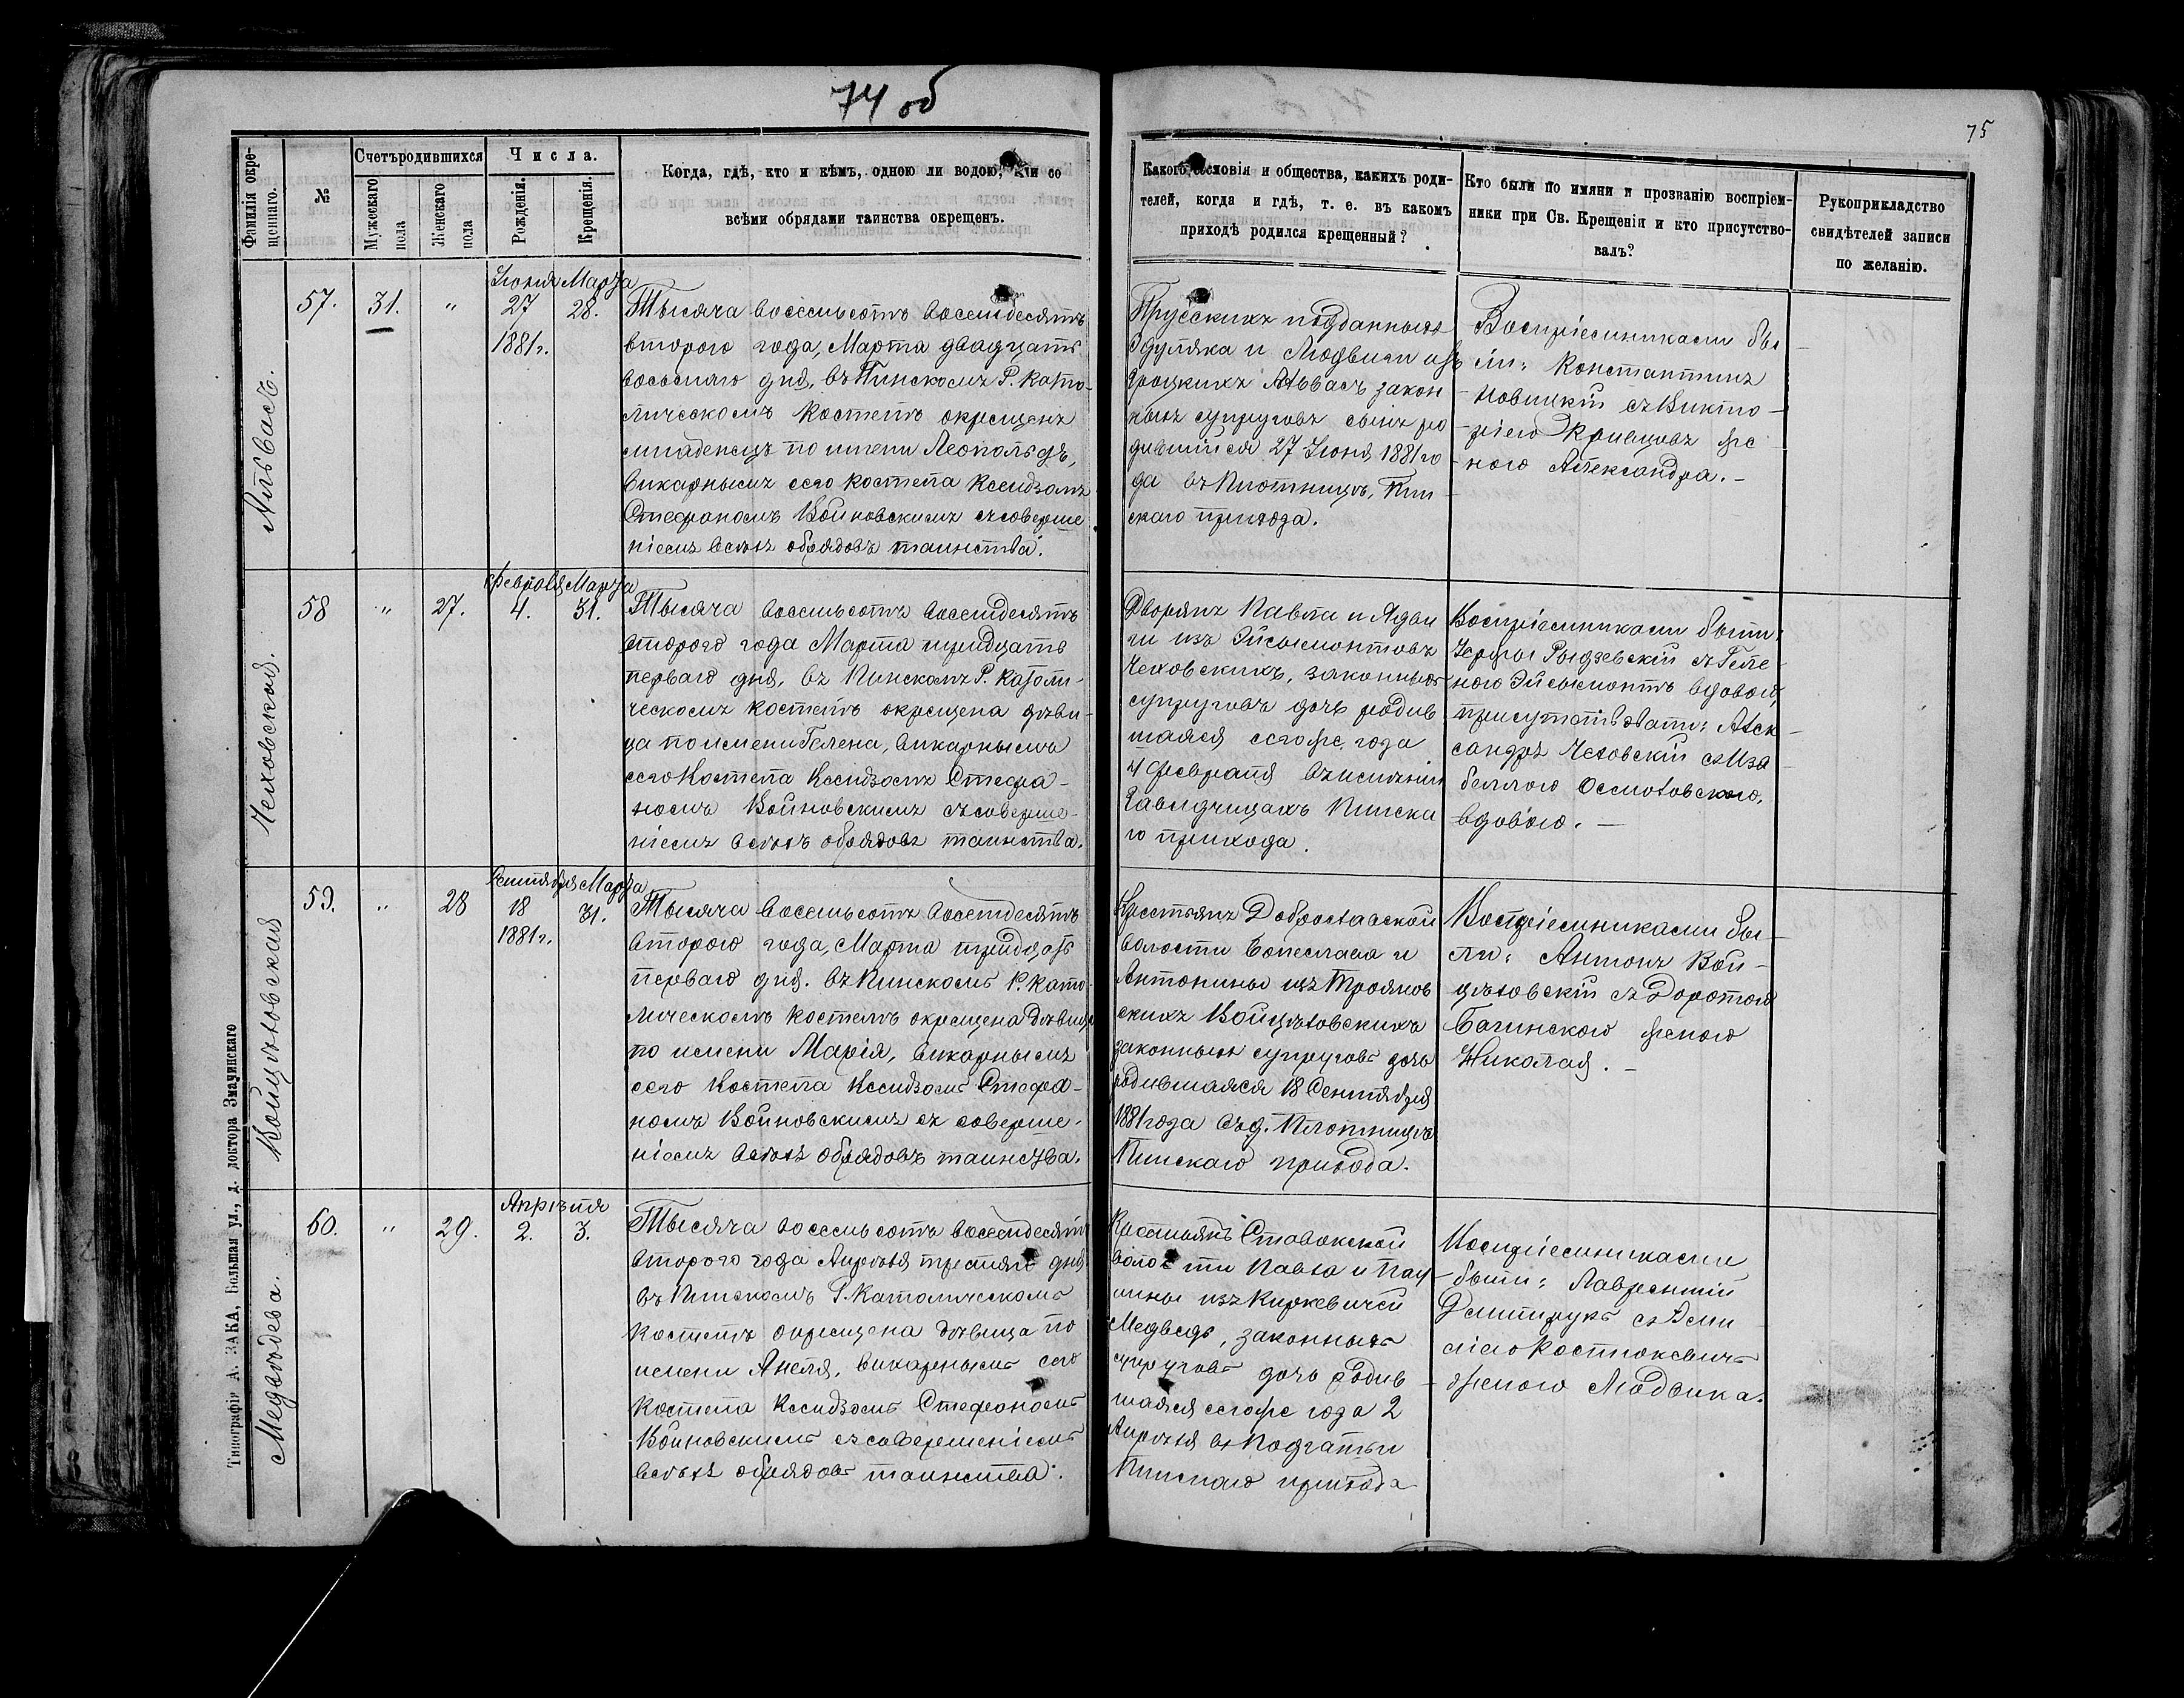 74 об
75
Фамилія окре-
щеннаго.
№
Счетъ родившихся
Мужескаго
пола
Женскаго
пола
Числа.
Рожденія.
Крещенія.
Когда, гдѣ, кто и кѣмъ, одною ли водою, или со
всѣми обрядами таинства окрещенъ.
Какого сословія и общества, какихъ роди-
телей, когда и гдѣ, т. е. въ какомъ
приходѣ родился крещенный?
Кто были по имяни и прозванію воспріем-
ники при Св. Крещеніи и кто присутство-
валъ?
Рукоприкладство
свидѣтелей записи
по желанію.
57.
31.
"
Іюня Марта
27 28.
1881 г.
Тысяча восемьсотъ восемдесятъ
второго года, Марта двадцать
восьмаго дня, въ Пинскомъ Р. Като-
лическомъ Костелѣ окрещенъ
младенецъ по имени Леопольдъ,
викарнымъ сего Костела Ксендзомъ
Стефаномъ Войновскимъ съ соверше
ніемъ всѣхъ обрядовъ таинства.
Прусскихъ подданныхъ
и Людвиги изъ
закон
ныхъ супруговъ сынъ ро
дившійся 27 Іюня 1881 го
да въ Пин
скаго прихода.
Воспріемниками бы-
ли: Константинъ
Новицкій съ Викто-
ріею же-
ною Александра.-
58
"
27.
Февраля Марта
4. 31.
Чеховская.
Тысяча восемьсотъ восемдесятъ
второго года Марта тридцать
перваго дня, въ Пинскомъ Р. Католи-
ческомъ костелѣ окрещена дѣви-
ца по имени Гелена, викарнымъ
сего Костела Ксендзомъ Стефа-
номъ Войновскимъ съ соверше-
ніемъ всѣхъ обрядовъ таинства.
Дворянъ Павла и Ядви
ги изъ Эйсымонтовъ
Чеховскихъ, законныхъ
супруговъ дочь родив
шаяся сегоже года
4 февраля въ имѣніи
Пинска
го прихода.
Воспріемниками были:
Рыдзевскій съ Геле-
ною Эйсымонтъ вдовою,
присутствовали: Алек-
сандръ Чеховскій съ Иза
беллою Осмоловскою,
вдовою. -
59.
"
28
Сентября Марта
18 31.
1881 г.
Войцѣховская
Тысяча восемьсотъ восемдесятъ
второго года, Марта тридцать
перваго дня. въ Пинскомъ Р. Като-
лическомъ костелѣ окрещена дѣвица
по имени Марія, викарнымъ
сего Костела Ксендзомъ Стефа-
номъ Войновскимъ съ соверше-
ніемъ всѣхъ обрядовъ таинства.
Крестьянъ Доброславской
волости Болеслава и
Антонины изъ Троянов
скихъ Войцѣховскихъ
законныхъ супруговъ дочь
родившаяся 18 Сентября
1881 года въ д. Плотницѣ
Пинскаго прихода.
Воспріемниками бы-
ли: Антонъ Вой-
цѣховскій съ Доротою
Багинскою женою
Николая. -
60.
"
29.
Апрѣля
2. 3.
Медвѣдева.
Тысяча восемьсотъ восемдесятъ
второго года Апрѣля третяго дня
въ Пинскомъ Р. Католическомъ
костелѣ окрещена дѣвица по
имени Анеля, викарнымъ сего
Костела Ксендзомъ Стефаномъ
Войновскимъ съ совершеніемъ
всѣхъ обрядовъ таинства.
Крестьянъ Ставокской
волости Павла и Пау
лины изъ Киркевичей
Медведь, законныхъ
супруговъ дочь родив-
шаяся сегоже года 2
Апрѣля въ
Пинскаго прихода
Воспріемниками
были: Лаврентій
Дмитрукъ съ Эми
ліею Костюкевичъ
женою Людвика.
Типографія А. ЗАКА, Большая ул., д. доктора Змачинскаго